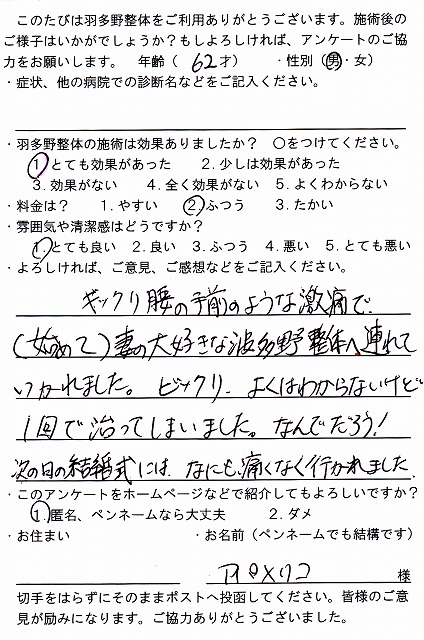 このたびは羽多野整体をご利用ありがとうございます。施術後の
ご様子はいかがでしょうか？もしよろしければ、アンケートのご協
力をお願いします。 年齢（ 62才） ・性別（男・女）
・症状、他の病院での診断名などをご記入ください。
・羽多野整体の施術は効果ありましたか？ ○をつけてください。
1.とても効果があった 2.少しは効果があった
3.効果がない 4.全く効果がない 5.よくわからない
・料金は？ 1.やすい 2.ふつう 3.たかい
・雰囲気や清潔感はどうですか？
1.とても良い 2.良い 3.ふつう 4.悪い 5.とても悪い
・よろしければ、ご意見、ご感想などをご記入ください。
ギックリ腰の手前のような激痛で
（始めて）妻の大好きな波多野整体へ連れて
いかれました。ビックリ、よくはわからないけど
1回で治ってしまいました。なんでだろう！
次の日の結婚式には、なにも痛くなく行かれました
・このアンケートをホームページなどで紹介してもよろしいですか？
1.匿名、ペンネームなら大丈夫 2.ダメ
・お住まい ・お名前（ペンネームでも結構です）
様
切手をはらずにそのままポストへ投函してください。皆様のご意
見が励みになります。ご協力ありがとうございました。